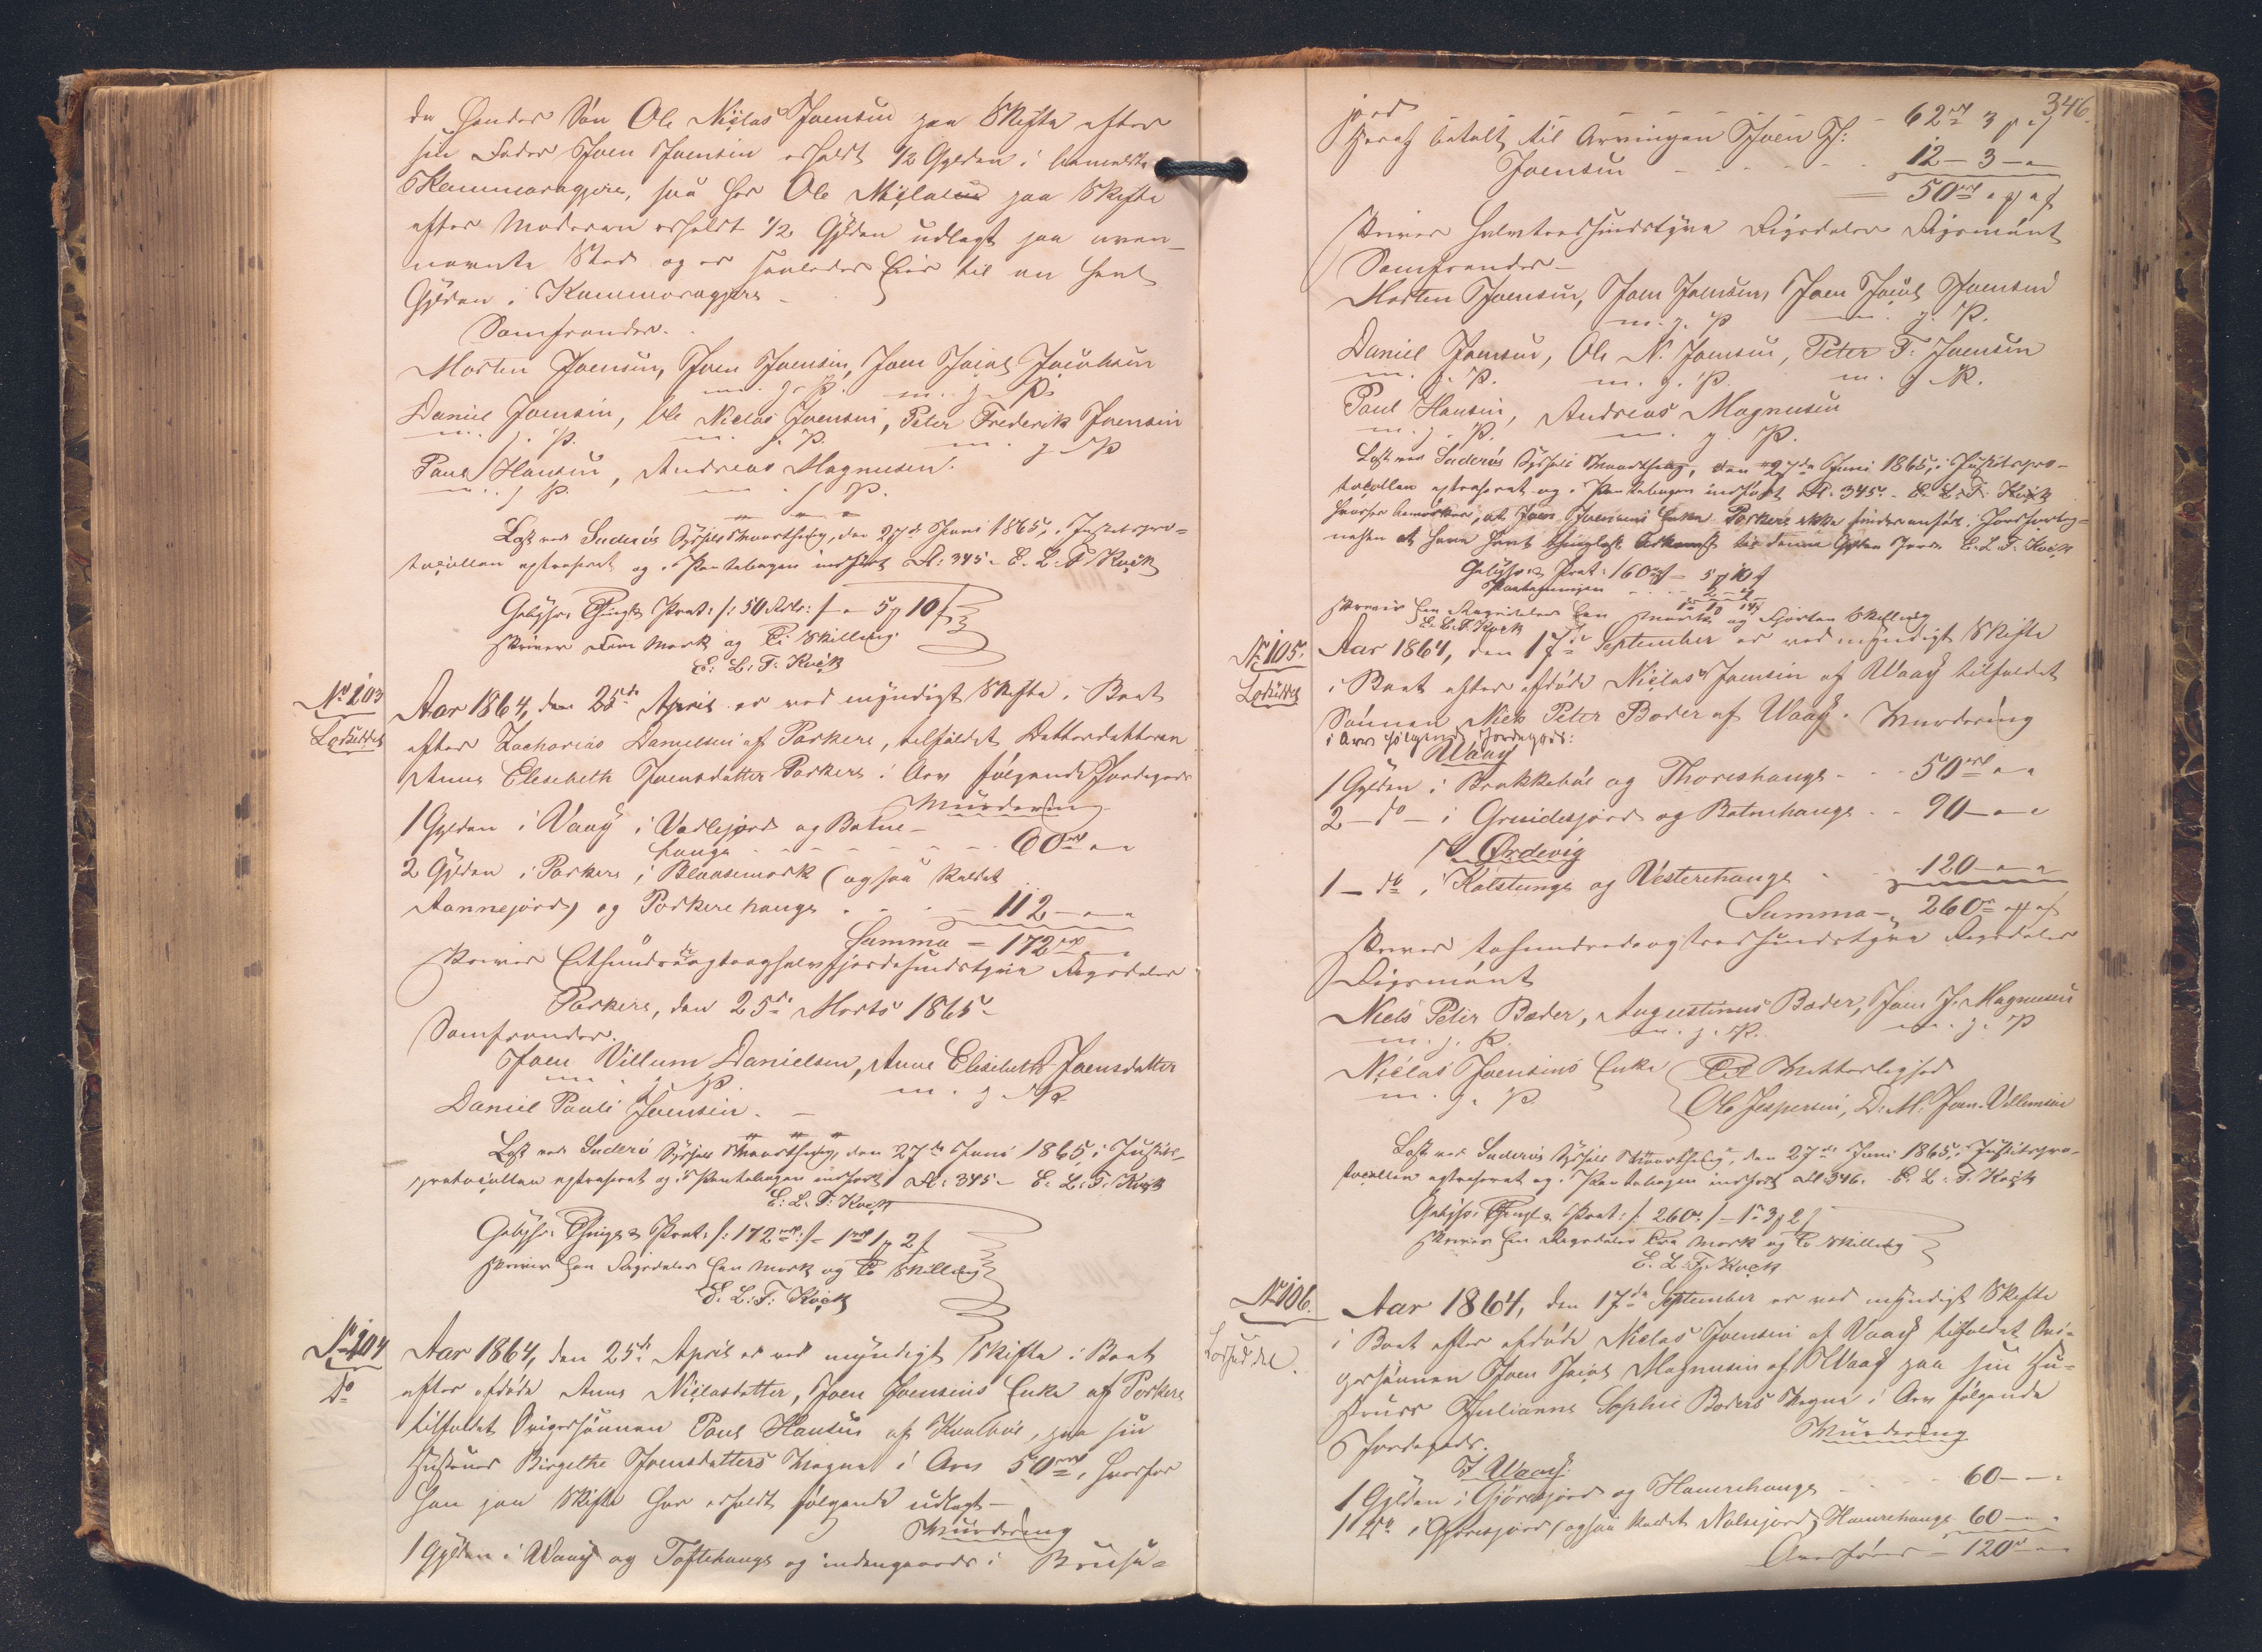 da hendes Søn Ole Niclas Joensen paa Skifte efter
sin Fader Joen Joensen erholdt 1/2 Gylden i bemeldte
Kammeragjere, saa har Ole Niclasen paa Skifte
efter Moderen erholdt 1/2 Gylden udlagt paa oven-
nævnte Sted og er saaledes Eier til en heel
Gylden i Kammeragjere -
Samfrænder.
Morten Joensen, Joen Joensen, Joen Jacob Jacobsen
m. g. P. m. g. P.
Daniel Joensen, Ole Niclas Joensen, Peter Frederik Joensen
m. g. P. m. g. P. m. g. P
Paul Hansen, Andreas Magnusen.
m. g. P. m. g. P.
Læst ved Suderøs Syssels Vaarthing, den 27de Juni 1865, i Justitspro-
tocollen extraheret og i Pantebogen indført Fol: 345. E. L. T. Kock
Gebyhr: Thingl: Prot: /: 50 Rdlr: /- 5 ₰ 10 ſ
skriver Fem Mark og Ti Skilling.
E: L: T: Kock
No 103
Lodseddel
Aar 1864, den 25de April er ved myndigt Skifte i Boet
efter Zacharias Danielsen af Porkere, tilfaldet Datterdatteren
Anne Elisebeth Joensdatter Porkere i Arv følgende Jordegods
Vurdering
1 Gylden i Vaag i Vadlejord og Botne-
hauge - - - - - - 60 rd " "
2 Gylden i Porkere i Blaasemark (ogsaa kaldet
Aannejord) og Porkerehauge . . . - 112 - " "
Summa = 172 rd
skriver Ethundredeogtoghalvfjerdsindstyve Rigsdaler
Porkere, den 25de Marts 1865.
Samfrænder.
Joen Villum Danielsen, Anne Elisebeth Joensdatter
m. g. P. m. g. P.
Daniel Pauli Joensen. -
Læst ved Suderø Syssels Vaarthing, den 27de Juni 1865, i Justits-
protocollen extraheret og i Pantebogen indført Fol: 345. E. L. T. Kock
E: L. T: Kock
Gebyhr: Thingl: Prot: /: 172 rd :/- 1 rd 1 ₰ 2 ſ
skriver Een Rigsdaler Een Mark og To Skilling
E. L: T: Kock
No 104
do
Aar 1864, den 25de April er ved myndigt Skifte i Boet
efter afdøde Anne Niclasdatter, Joen Joensens Enke af Porkere
tilfaldet Svigersønnen Paul Hansen af Kvalbøe, paa sin
Hustrues Birgethe Joensdatters Vegne i Arv 50 rd, hvorfor
han paa Skifte har erholdt følgende udlagt -
Vurdering
1 Gylden i Waag og Toftehauge og indengaards i
346.
jord - - - - - 62 rd 3 ₰ " ſ
heraf betalt til Arvingen Joen J:
Joensen - - - - - 12 - 3 - "
= 50 rd " ₰ " ſ
skriver halvtredsindstyve Rigsdaler Rigsmønt
Samfrænder -
Morten Joensen, Joen Joensen, Joen Jacob Joensen
m. g. P m. g. P.
Daniel Joensen, Ole N. Joensen, Peter F: Joensen
m. g. P. m. g. P. m. g. P.
Paul Hansen, Andreas Magnusen
m. g. P. m. g. P.
Læst ved Suderøs Syssels Vaarthing, den 27de Juni 1865, i Justitspro-
tocollen extraheret og i Pantebogen indført Fol: 345. - E. L. T. Kock
hvorhos bemærkes, at Joen Joensens Enke Porkere ikke findes anført i Jordforteg-
nelsen at have havt thinglæst Adkomst til denne Gylden Jord. E. L. T. Kock
Gebyhr: Prot: 160 rd = 5 ₰ 10 ſ
skriver Een Rigsdaler Een Mark og Fjorten Skilling
E. L. T. Kock
No 105.
Lodseddel
Aar 1864, den 17de September er ved myndigt Skifte
i Boet efter afdøde Niclas Joensen af Waag tilfaldet
Sønnen Niels Peter Bæder af Waag. Vurdering
i Arv følgende Jordegods:
Waag
1 Gylden i Brekkebøe og Thoreshauge - - 50 rd " "
2 - do - i Gruidesjord og Botnehauge - - 90 - " "
I Ørdevig
1 - do i Kalstunge og Vesterehauge - - 120 - " "
Summa - 260 rd " ₰ " ſ
skriver tohundredeogtredsindstyve Rigsdaler
Rigsmønt
Niels Peter Bæder, Augustinus Bæder, Joen J. Magnusen
m. g. P. m. g. P. m. g. P
Niclas Joensens Enke Til Vitterlighed
m. g. P. Ole Jespersen, D: M: Joen-Villumsen
Læst ved Suderøs Syssels Vaarthing, den 27de Juni 1865, i Justitspro-
tocollen extraheret og i Pantebogen indført Fol: 346. E. L. T. Kock
Gebyhr: Thingl & Prot: /: 260 rd /- 1 rd 3 ₰ 2 ſ
skriver Een Rigsdaler Tre Mark og To Skilling
E. L. T. Kock
No 106.
Lodseddel.
Aar 1864, den 17de September er ved myndigt Skifte
i Boet efter afdøde Niclas Joensen af Vaag tilfaldet Svi-
gersønnen Joen Jacob Magnusen af Waag paa sin Hu-
strues Julianne Sophie Bæders Vegne i Arv følgende
Jordegods. Vurdering
I Waag.
1 Gylden i Gjøresjord og Hamrehauge - - 60 - - "
1 do i Gjøresjord (ogsaa kaldet Nalsejord) Hamrehauge 60 - " "
Overføres - 120 rd " "